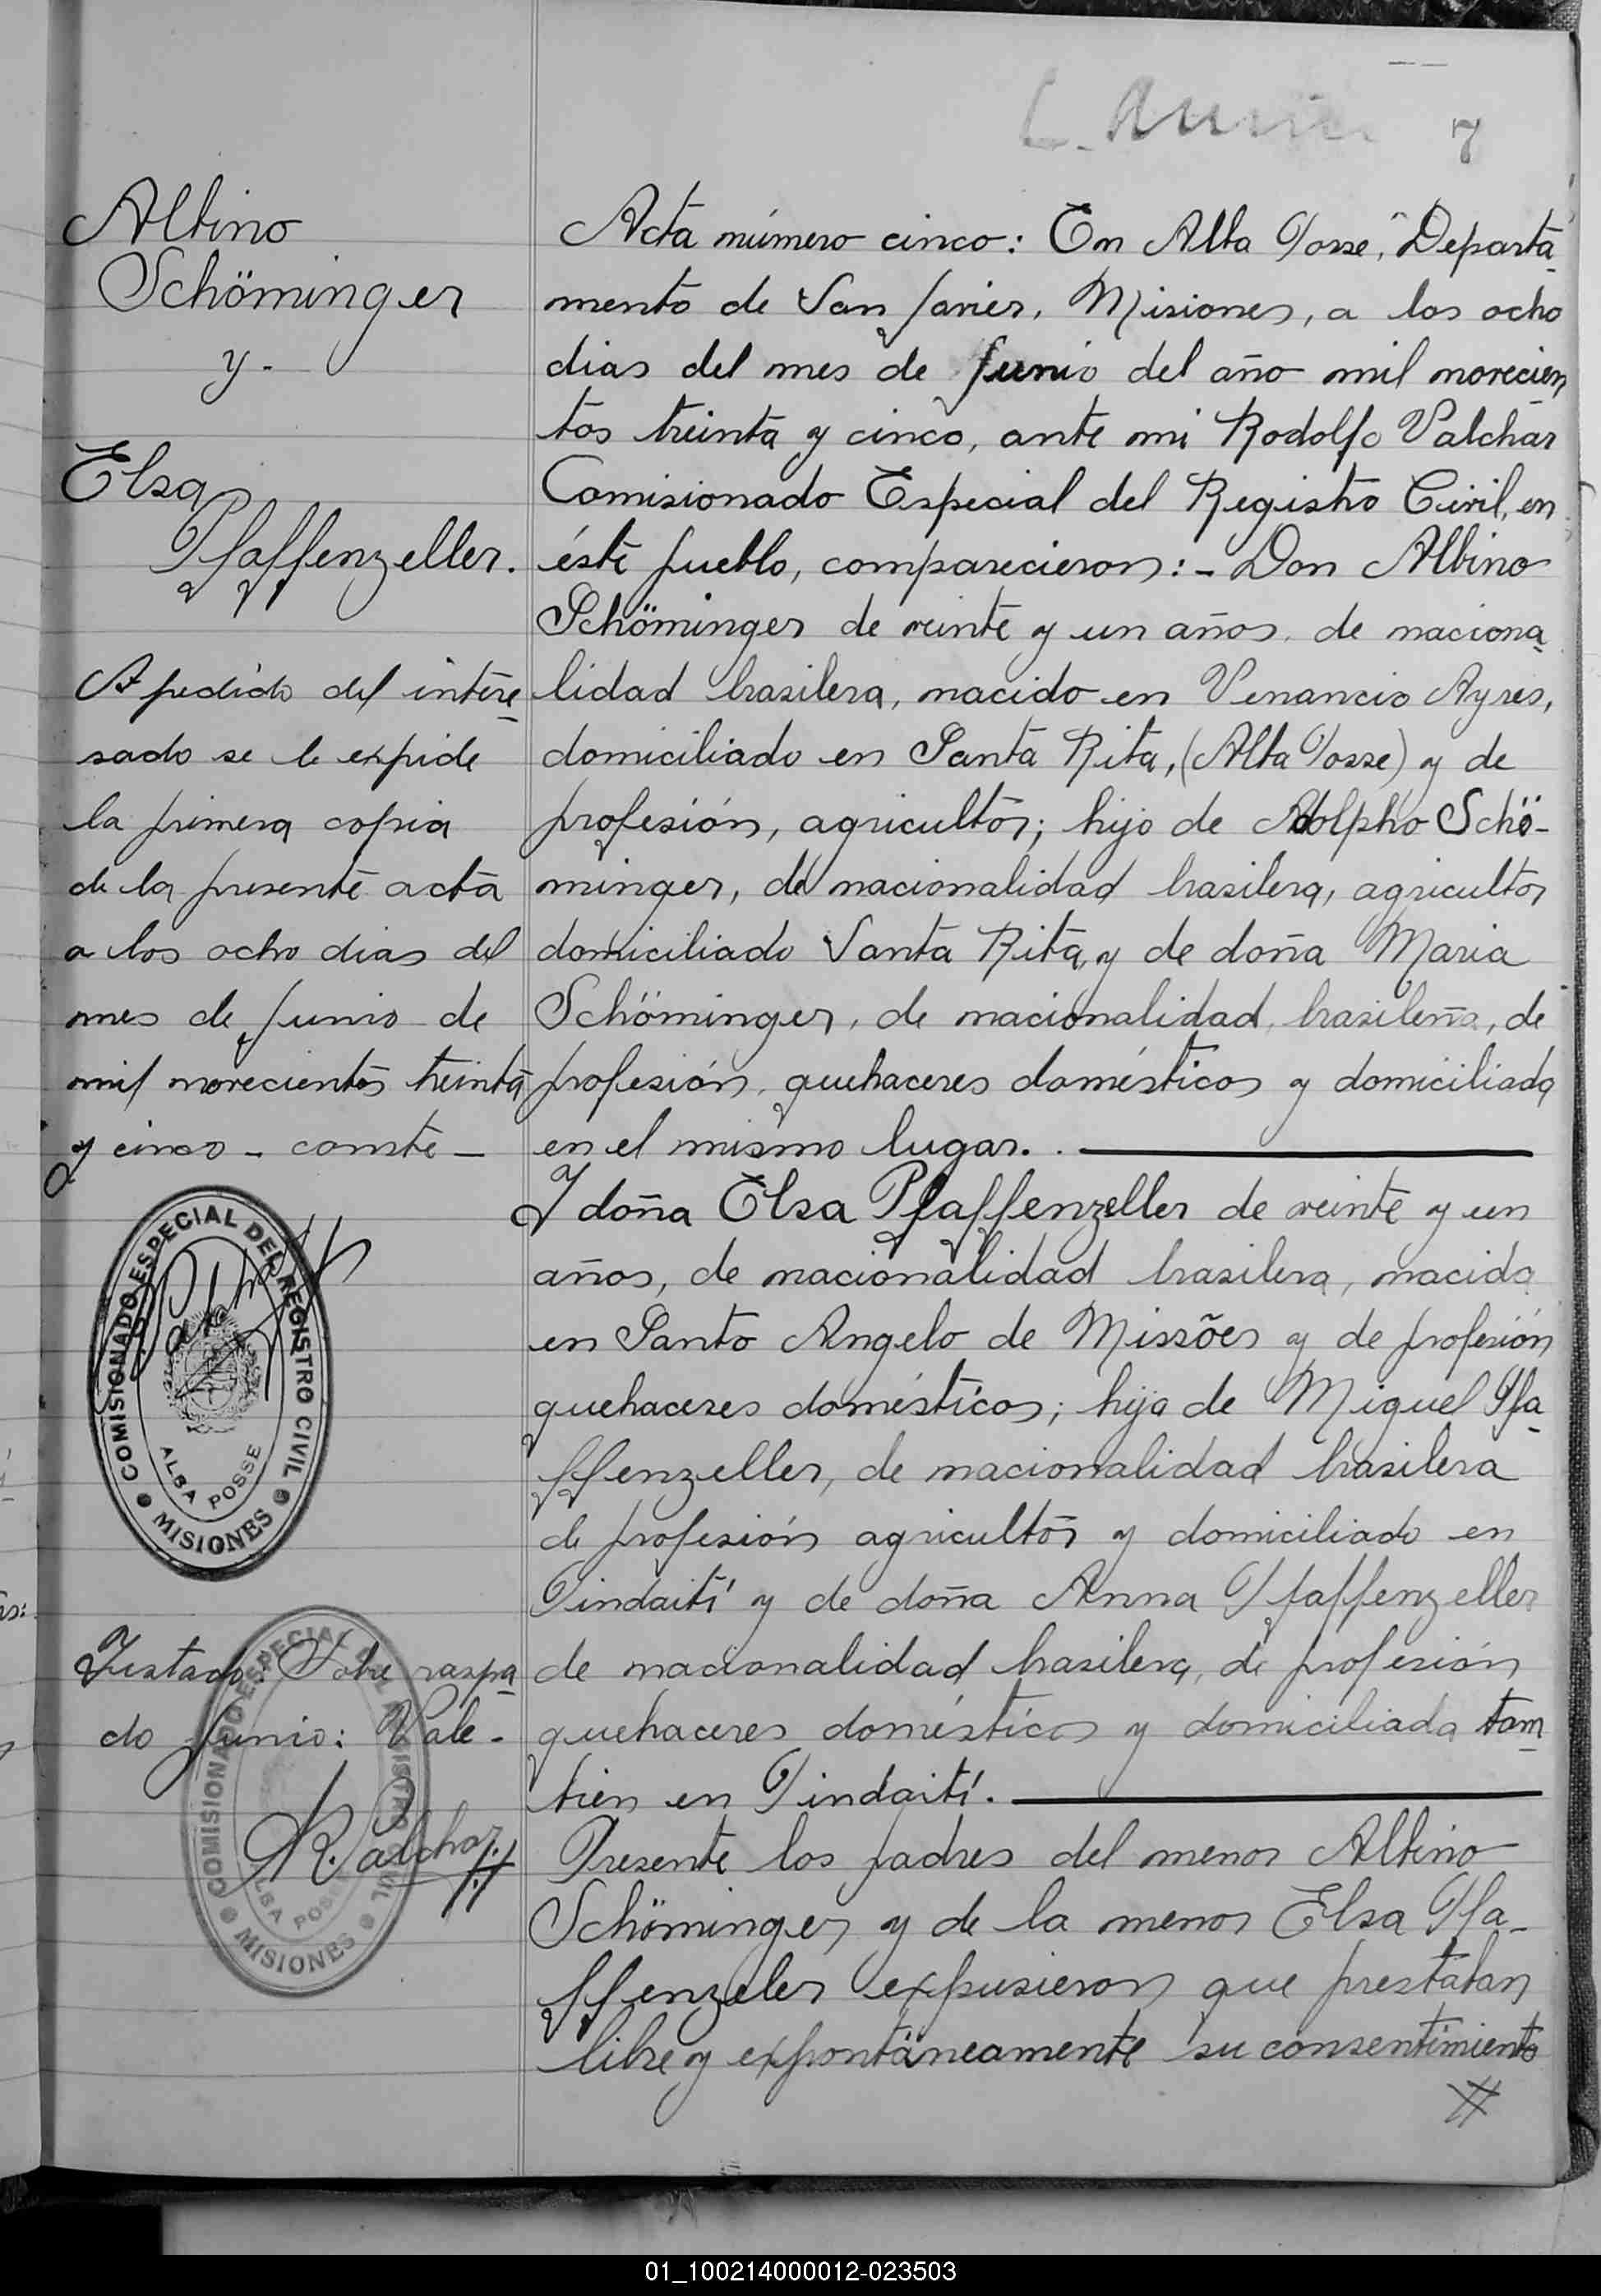 7
Albino
Schöminger
y-
Elsa
Pfaffenzeller.
A pedido del intere
sado se le expide
la primera copia
de la presente acta
a los ocho dias del
mes de Junio de
mil novecientos treinta
y cinco - conste -
COMISIONADO ESPECIAL DEL REGISTRO CIVIL
ALBA POSSE
MISIONES
Testado: Sobre raspa
do Junio: Vale-
R. Palchar
COMISIONADO ESPECIAL DEL REGISTRO CIVIL
ALBA POSSE
MISIONES
Acta número cinco: En Alba Posse, Departa
mento de San Javier, Misiones, a los ocho
dias del mes de Junio del año mil novecien
tos treinta y cinco, ante mi Rodolfo Palchar
Comisionado Especial del Registro Civil, en
éste pueblo, comparecieron: - Don Albino
Schöminger de veinte y un años, de naciona
lidad brasilera, nacido en Venancio Ayres,
domiciliado en Santa Rita, (Alba Posse) y de
profesión, agricultor; hijo de Adolpho Schö-
minger, de nacionalidad brasilera, agricultor
domiciliado Santa Rita, y de doña Maria
Schöminger, de nacionalidad brasileña, de
profesión, quehaceres domésticos y domiciliada
en el mismo lugar. .
Y doña Elsa Pfaffenzeller de veinte y un
años, de nacionalidad brasilera, nacida
en Santo Angelo de Missões y de profesión
quehaceres domésticos; hija de Miguel Pfa
ffenzeller, de nacionalidad brasilera
de profesión agricultor y domiciliado en
Pindaití y de doña Anna Pfaffenzeller
de nacionalidad brasilera, de profesión
quehaceres domésticos y domiciliada tam
bien en Pindaití.
Presente los padres del menor Albino
Schöminger y de la menor Elsa Pfa-
ffenzeler expusieron que prestaban
libre y expontáneamente su consentimiento
01_100214000012-023503